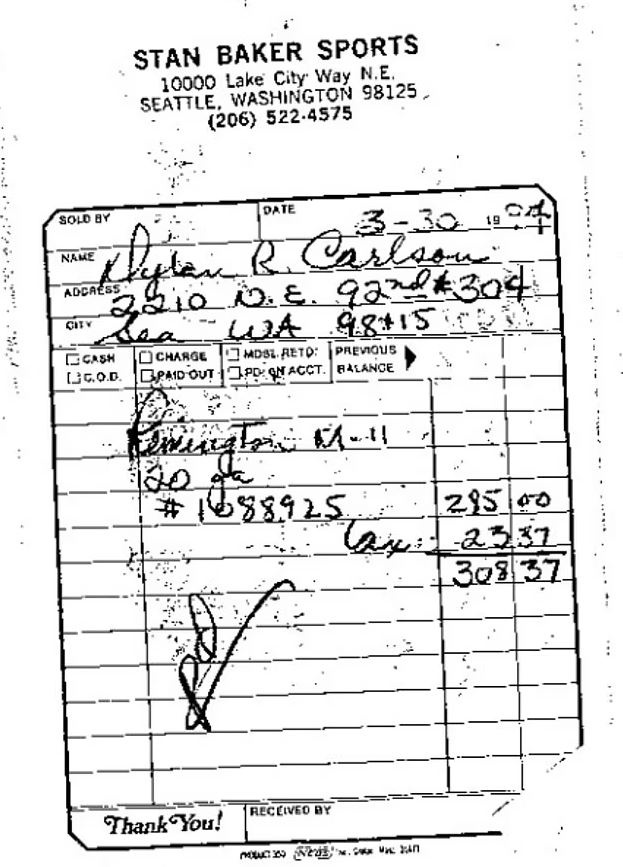 STAN BAKER SPORTS
10000 Lake City Way N.E.
SEATTLE, WASHINGTON 98125
(206) 522-4575
SOLD BY DATE 3-30 1994
NAME Dylan R. Carlson
ADDRESS 2210 N.E. 92nd #304
CITY Sea WA 98115
CASH CHARGE MDSE. RETD. PREVIOUS
C.O.D. PAID OUT PD. ON ACCT. BALANCE
Remington M-11
20 ga
#1088925 285 00
tax 23 37
308 37
Thank You! RECEIVED BY